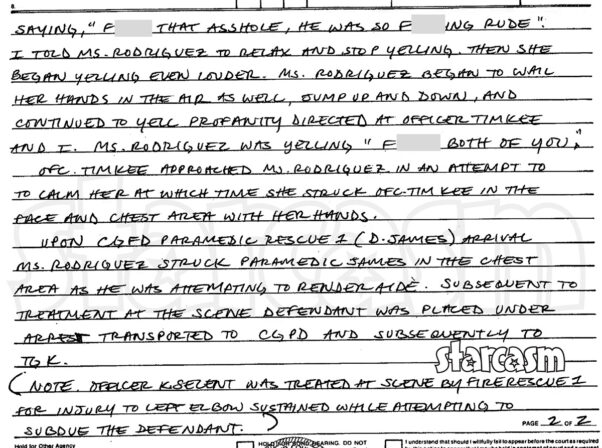 SAYING, " F THAT ASSHOLE, HE WAS SO F ING RUDE".
I TOLD MS. RODRIGUEZ TO RELAX AND STOP YELLING. THEN SHE
BEGAN YELLING EVEN LOUDER. MS. RODRIGUEZ BEGAN TO WAIL
HER HANDS IN THE AIR AS WELL, JUMP UP AND DOWN, AND
CONTINUED TO YELL PROFANITY DIRECTED AT OFFICER TIMKEE
AND I. MS. RODRIGUEZ WAS YELLING " F BOTH OF YOU,"
OFC. TIMKEE APPROACHED MS. RODRIGUEZ IN AN ATTEMPT TO
TO CALM HER AT WHICH TIME SHE STRUCK OFC. TIMKEE IN THE
FACE AND CHEST AREA WITH HER HANDS.
UPON CGFD PARAMEDIC RESCUE 1 (D. JAMES) ARRIVAL
MS. RODRIGUEZ STRUCK PARAMEDIC JAMES IN THE CHEST
AREA AS HE WAS ATTEMPTING TO RENDER AIDE. SUBSEQUENT TO
TREATMENT AT THE SCENE DEFENDANT WAS PLACED UNDER
ARREST TRANSPORTED TO CGPD AND SUBSEQUENTLY TO
TGK.
starcasm
(NOTE. OFFICER K. SELENT WAS TREATED AT SCENE BY FIRE RESCUE 1
FOR INJURY TO LEFT ELBOW SUSTAINED WHILE ATTEMPTING TO
SUBDUE THE DEFENDANT. )
PAGE 2 OF 2
Hold for Other Agency
HEARING. DO NOT
I understand that should I willfully fail to appear before the court as required